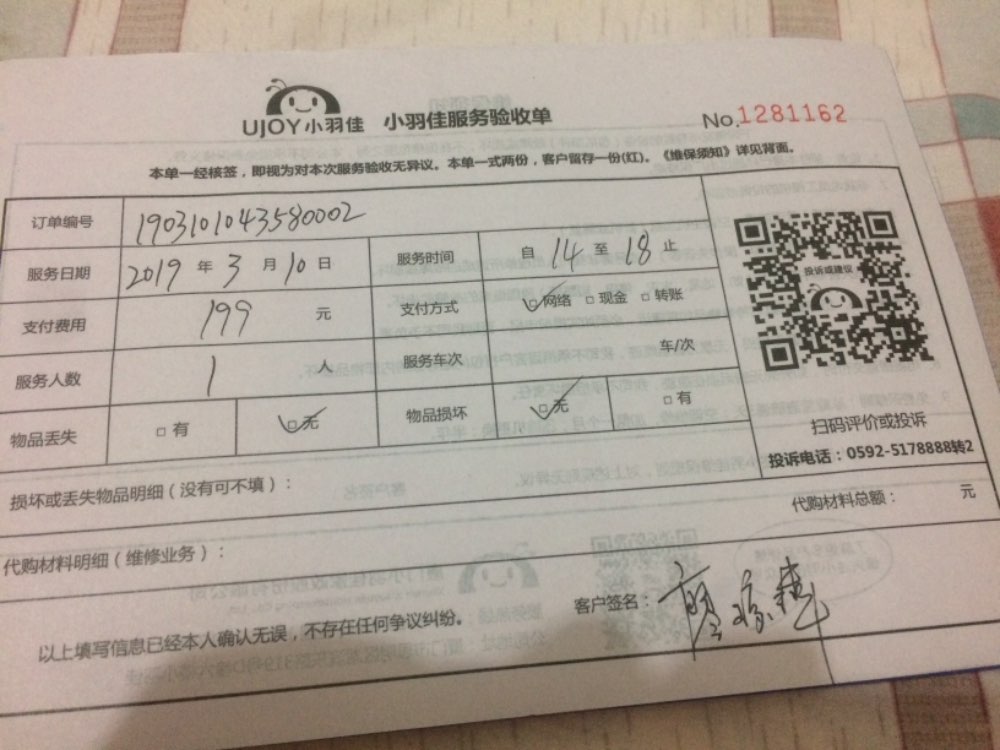 UJOY小羽佳 小羽佳服务验收单 No.1281162
本单一经核签，即视为对本次服务验收无异议。本单一式两份，客户留存一份(红)。《维保须知》详见背面。
订单编号 1903101043580002
服务日期 2019 年 3 月 10 日 服务时间 自 14 至 18 止
支付费用 199 元 支付方式 ☑网络 □现金 □转账
服务人数 1 人 服务车次 车/次
物品丢失 □有 ☑无 物品损坏 ☑无 □有
投诉或建议
扫码评价或投诉
投诉电话：0592-5178888转2
损坏或丢失物品明细（没有可不填）：
代购材料总额： 元
代购材料明细（维修业务）：
以上填写信息已经本人确认无误，不存在任何争议纠纷。
客户签名：